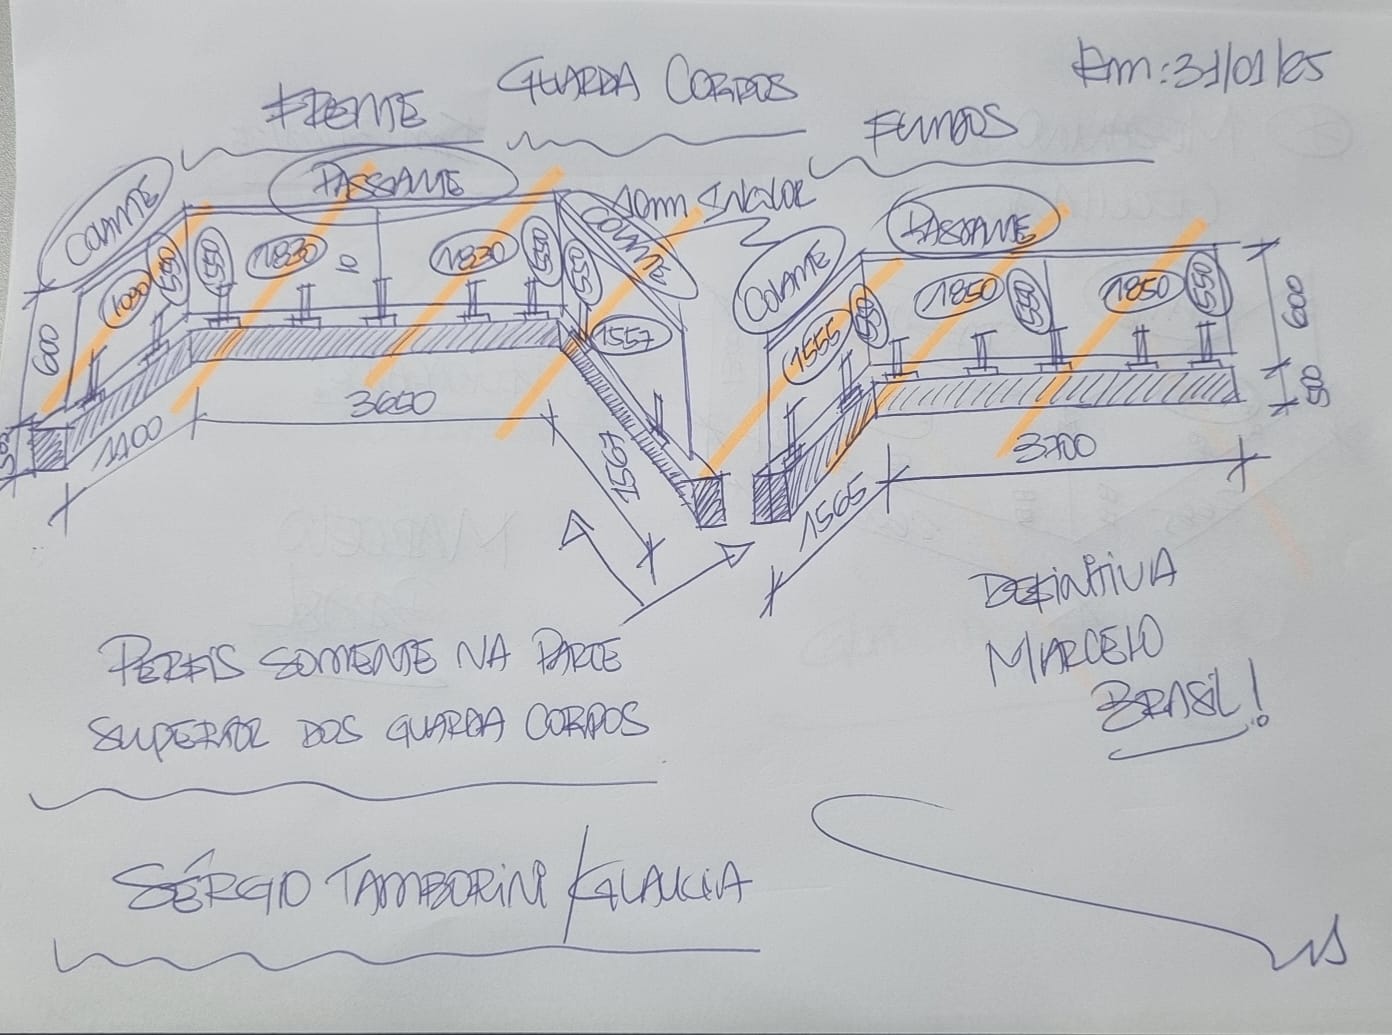 Em: 31/01/25
GUARDA CORPOS
FRENTE
FUNDOS
COLANTE
PASSANTE
COLANTE
10mm INCOLOR
COLANTE
PASSANTE
1090
550
550
1830
1830
550
550
1557
600
50
1100
3660
1567
1555
550
1850
550
1850
550
600
50
1565
3700
PERFIS SOMENTE NA PARTE
SUPERIOR DOS GUARDA CORPOS
DEFINITIVA
MARCELO
BRASIL!
SÉRGIO TAMBORINI / GLAUCIA